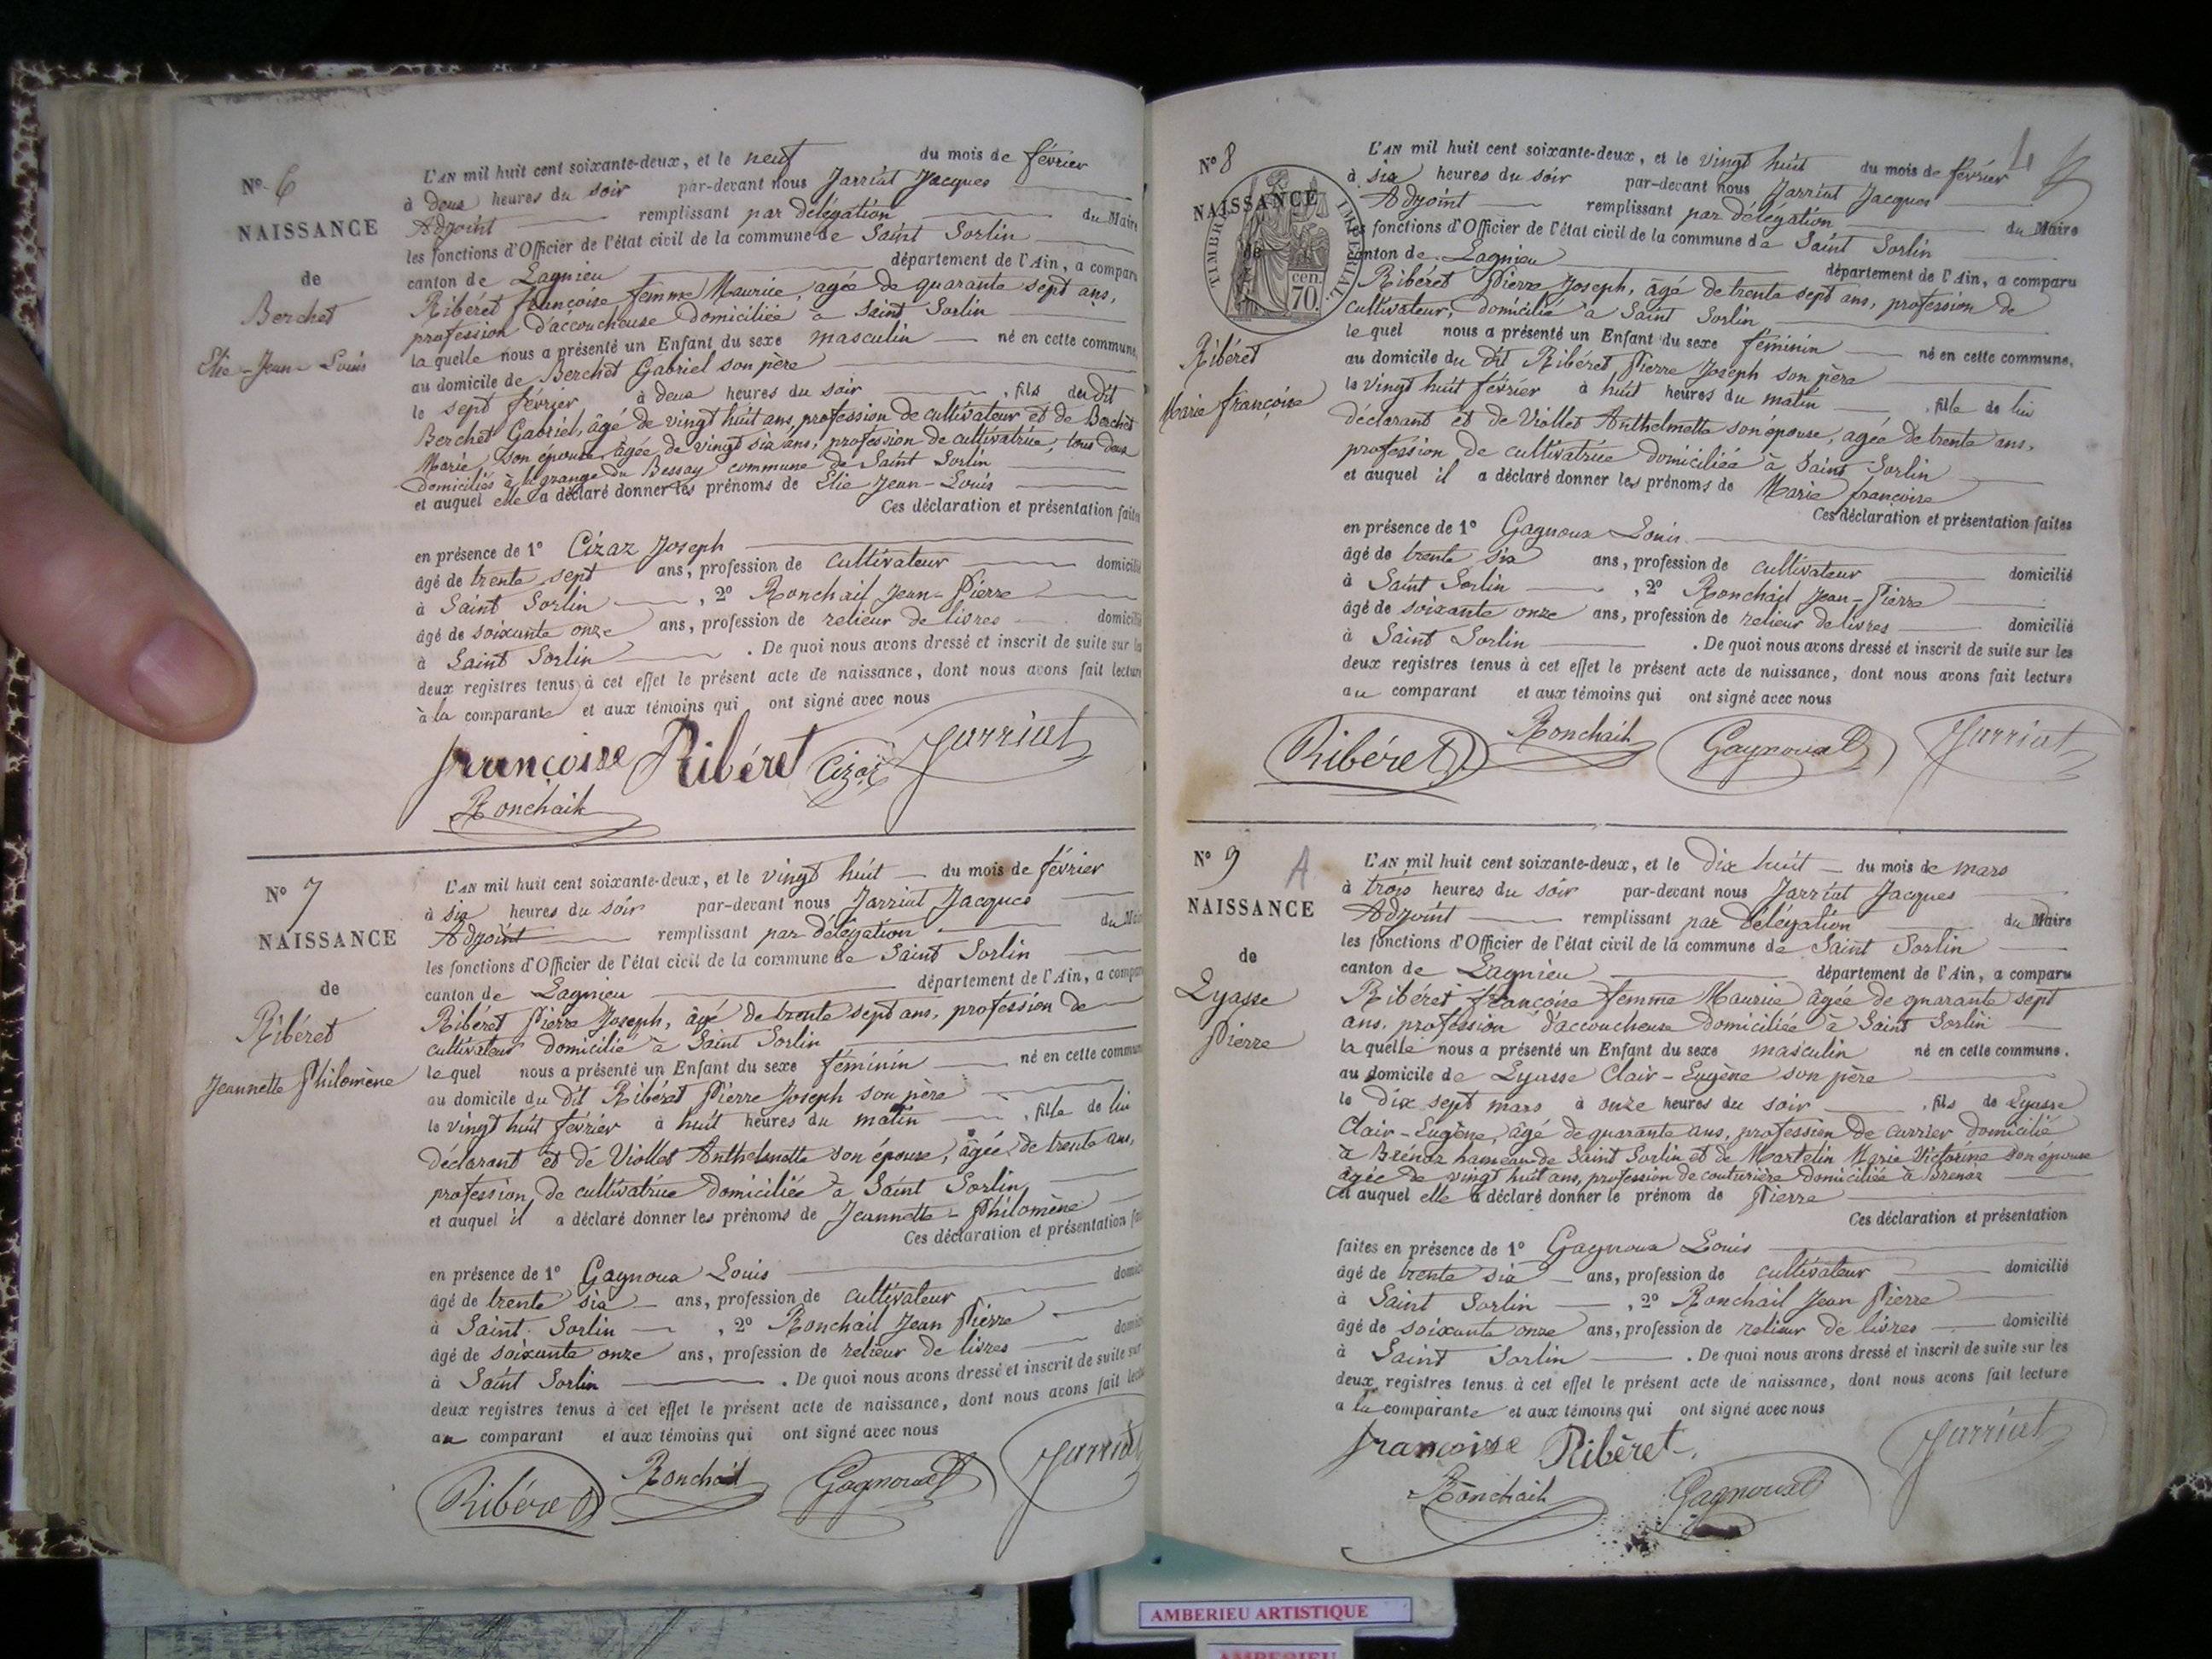 Nº 6
NAISSANCE
de
Berchet
Elie-Jean-Louis
L'AN mil huit cent soixante-deux, et le neuf du mois de février
à deux heures du soir par-devant nous Jarriat Jacques
Adjoint remplissant par délégation du Maire
les fonctions d'Officier de l'état civil de la commune de Saint Sorlin
canton de Lagnieu département de l'Ain, a comparu
Ribéret françoise femme Maurice, agée de quarante sept ans,
profession d'accoucheuse domiciliée à Saint Sorlin
la quelle nous a présenté un Enfant du sexe masculin né en cette commune,
au domicile de Berchet Gabriel son père
le sept février à deux heures du soir , fils du dit
Berchet Gabriel, âgé de vingt huit ans, profession de cultivateur et de Berchet
Marie, son épouse, âgée de vingt six ans, profession de cultivatrice, tous deux
domiciliés à la grange du Bessay commune de Saint Sorlin
et auquel elle a déclaré donner les prénoms de Elie Jean-Louis
Ces déclaration et présentation faites
en présence de 1º Cizaz Joseph
âgé de trente sept ans, profession de cultivateur domicilié
à Saint Sorlin , 2º Ronchail Jean-Pierre
âgé de soixante onze ans, profession de relieur de livres domicilié
à Saint Sorlin . De quoi nous avons dressé et inscrit de suite sur les
deux registres tenus à cet effet le présent acte de naissance, dont nous avons fait lecture
à la comparante et aux témoins qui ont signé avec nous
françoise Ribéret Cizaz Jarriat
Ronchail
Nº 7
NAISSANCE
de
Ribéret
Jeannette Philomène
L'AN mil huit cent soixante-deux, et le vingt huit du mois de février
à six heures du soir par-devant nous Jarriat Jacques
Adjoint remplissant par délégation du Maire
les fonctions d'Officier de l'état civil de la commune de Saint Sorlin
canton de Lagnieu département de l'Ain, a comparu
Ribéret Pierre Joseph, âgé de trente sept ans, profession de
cultivateur domicilié à Saint Sorlin
lequel nous a présenté un Enfant du sexe féminin né en cette commune
au domicile du dit Ribéret Pierre Joseph son père
le vingt huit février à huit heures du matin , fille de lui
déclarant et de Viollet Anthelmette son épouse, âgée de trente ans,
profession de cultivatrice domiciliée à Saint Sorlin
et auquel il a déclaré donner les prénoms de Jeannette-Philomène
Ces déclaration et présentation fai
en présence de 1º Gagnoux Louis
âgé de trente six ans, profession de cultivateur domici
à Saint Sorlin , 2º Ronchail Jean Pierre
âgé de soixante onze ans, profession de relieur de livres domici
à Saint Sorlin . De quoi nous avons dressé et inscrit de suite sur
deux registres tenus à cet effet le présent acte de naissance, dont nous avons fait lectu
au comparant et aux témoins qui ont signé avec nous
Ribéret Ronchail Gagnoux Jarriat
Nº 8
NAISSANCE
de
TIMBRE IMPERIAL
70 cen.
Ribéret
Marie françoise
L'AN mil huit cent soixante-deux, et le vingt huit du mois de février
à six heures du soir par-devant nous Jarriat Jacques
Adjoint remplissant par délégation du Maire
les fonctions d'Officier de l'état civil de la commune de Saint Sorlin
canton de Lagnieu département de l'Ain, a comparu
Ribéret Pierre Joseph, âgé de trente sept ans, profession de
cultivateur, domicilié à Saint Sorlin
le quel nous a présenté un Enfant du sexe féminin né en cette commune.
au domicile du dit Ribéret Pierre Joseph son père
le vingt huit février à huit heures du matin , fille de lui
déclarant et de Viollet Anthelmette son épouse, agée de trente ans,
profession de cultivatrice domiciliée à Saint Sorlin
et auquel il a déclaré donner les prénoms de Marie françoise
Ces déclaration et présentation faites
en présence de 1º Gagnoux Louis
âgé de trente six ans, profession de cultivateur domicilié
à Saint Sorlin , 2º Ronchail Jean-Pierre
âgé de soixante onze ans, profession de relieur de livres domicilié
à Saint Sorlin . De quoi nous avons dressé et inscrit de suite sur les
deux registres tenus à cet effet le présent acte de naissance, dont nous avons fait lecture
au comparant et aux témoins qui ont signé avec nous
Ribéret Ronchail Gagnoux Jarriat
Nº 9 A
NAISSANCE
de
Lyasse
Pierre
L'AN mil huit cent soixante-deux, et le Dix huit du mois de mars
à trois heures du soir par-devant nous Jarriat Jacques
Adjoint remplissant par délégation du Maire
les fonctions d'Officier de l'état civil de la commune de Saint Sorlin
canton de Lagnieu département de l'Ain, a comparu
Ribéret françoise femme Maurice âgée de quarante sept
ans, profession d'accoucheuse domiciliée à Saint Sorlin
la quelle nous a présenté un Enfant du sexe masculin né en cette commune.
au domicile de Lyasse Clair-Eugène son père
le Dix sept mars à onze heures du soir , fils de Lyasse
Clair-Eugène, âgé de quarante ans, profession de carrier domicilié
à Brénaz hameau de Saint Sorlin et de Martelin Marie Victorine son épouse
âgée de vingt huit ans, profession de couturière domiciliée à Brenaz
et auquel elle a déclaré donner le prénom de Pierre
Ces déclaration et présentation
faites en présence de 1º Gagnoux Louis
âgé de trente six ans, profession de cultivateur domicilié
à Saint Sorlin , 2º Ronchail Jean Pierre
âgé de soixante onze ans, profession de relieur de livres domicilié
à Saint Sorlin . De quoi nous avons dressé et inscrit de suite sur les
deux registres tenus à cet effet le présent acte de naissance, dont nous avons fait lecture
a la comparante et aux témoins qui ont signé avec nous
françoise Ribéret Jarriat
Ronchail Gagnoux
AMBERIEU ARTISTIQUE
AMBERIEU